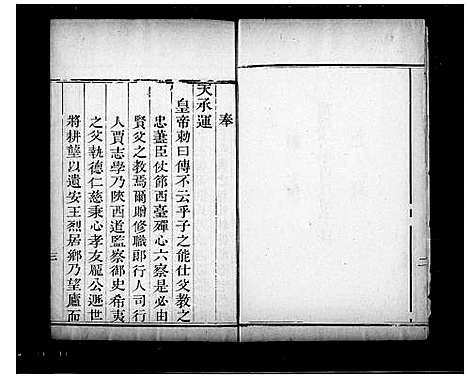 奉
天承運
皇帝勅曰傳不云乎子之能仕父教之
忠蓋臣仗節西臺殫心六察是必由
賢父之教焉爾贈修職郎行人司行
人賈志學乃陝西道監察御史希夷
之父執德仁慈秉心孝友龐公遯世
將耕壟以遺安王烈居鄉乃望廬而
三
二